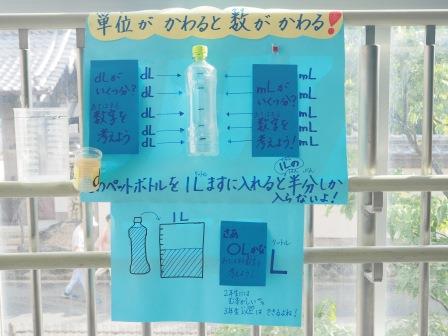 単位が かわると 数が かわる!
dLが
いくつ分?
数字を
考えよう
dL
dL
dL
dL
dL
mL
mL
mL
mL
mL
mLが
いくつ分?
数字を
考えよう!
このペットボトルを 1Lますに入れると半分しか
入らないよ!
1Lの
1L
さあ
○Lかな
考えよう!
リットル
L
2年生には
むずかしい
3年生以上は できるよね!